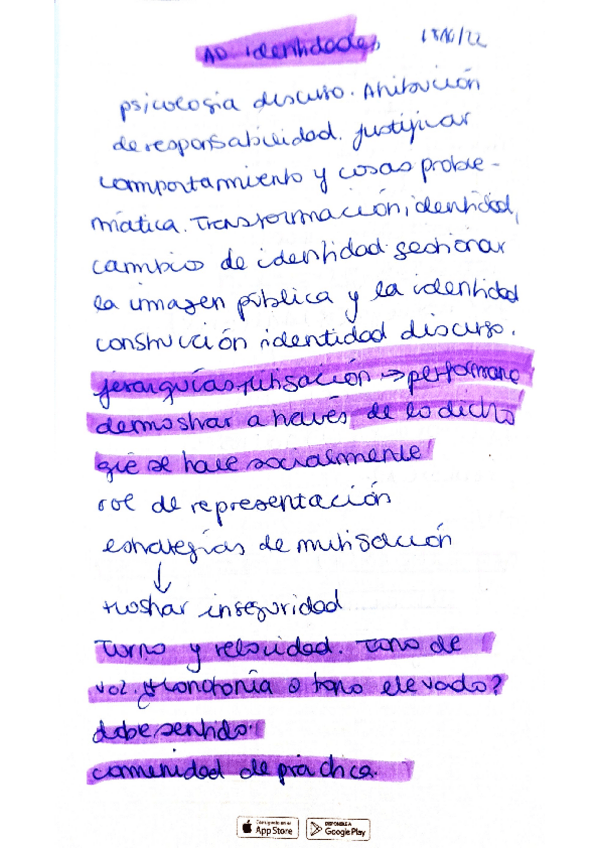 AD identidades 18/10/22
psicologia discurso. Atribución
de responsabilidad. justificar
comportamiento y cosas proble-
mática. Transformación, identidad,
cambios de identidad gestionar
la imagen pública y la identidad
construcción identidad discurso.
jerarquías, → performance
demostrar a través de lo dicho
qué se hace socialmente
rol de representación
estrategias de mitigación
↓
mostrar inseguridad
Turno y velocidad. Tono de
voz. ¿Monotonía o tono elevado?
dabe sentido.
comunidad de práctica.
Consíguelo en el App Store DISPONIBLE A Google Play